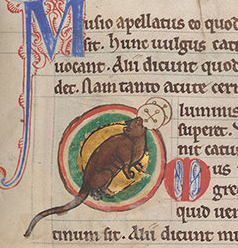 Musio apellatus eo quod
sit. Hunc uulgus cat
uocant. Alii dicunt quod
det. Nam tanto acute cer
luminis
superet. V
nit catus
Mus
gre
quid uer
tinum sit. Alii dicunt m